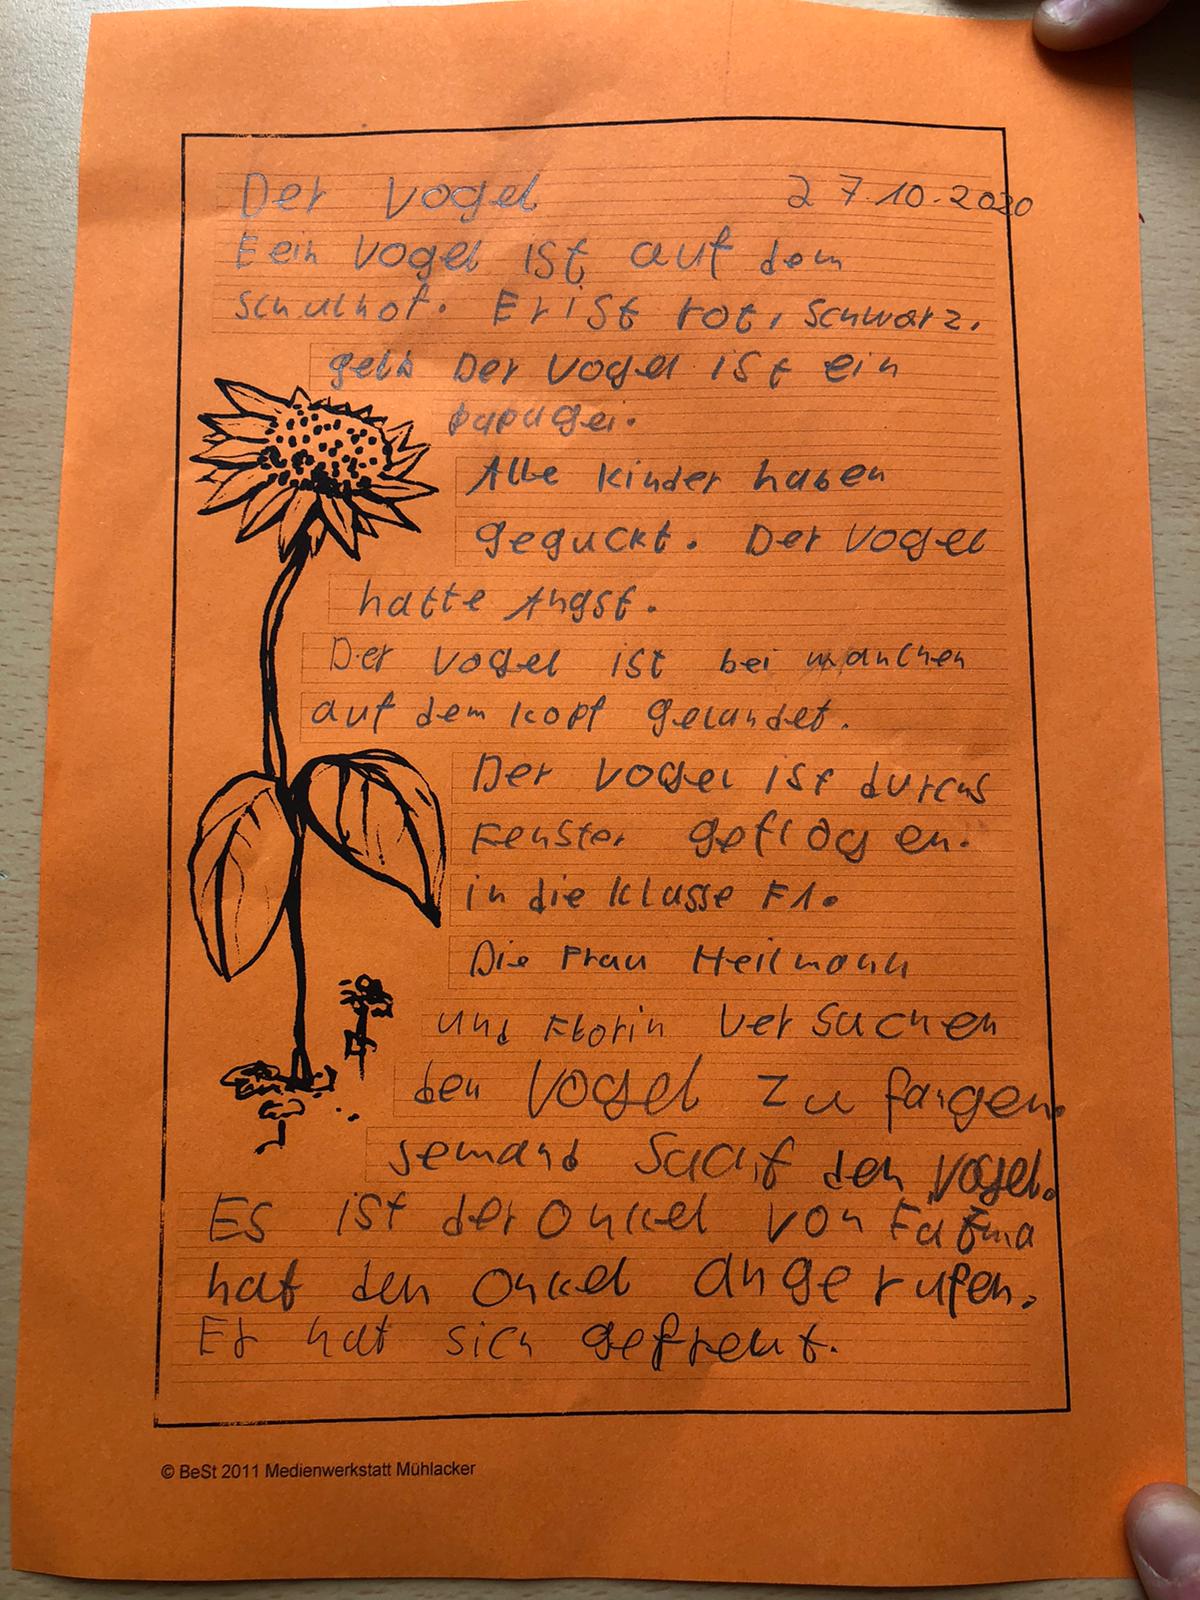 Der Vogel 27.10.2020
Eein Vogel ist auf dem
schulhof. Er ist rot, schwarz,
gelb Der Vogel ist ein
papagei.
Alle kinder haben
geguckt. Der Vogel
hatte Angst.
Der Vogel ist bei manchen
auf dem kopf gelandet.
Der Vogel ist durchs
Fenster geflogen.
in die Klasse F1.
Die Frau Heilmann
und Florin versuchen
den Vogel zu fangen.
jemand Sucht den Vogel.
Es ist der Onkel von Fatma
hat den Onkel angerufen.
Er hat sich gefreut.
© BeSt 2011 Medienwerkstatt Mühlacker